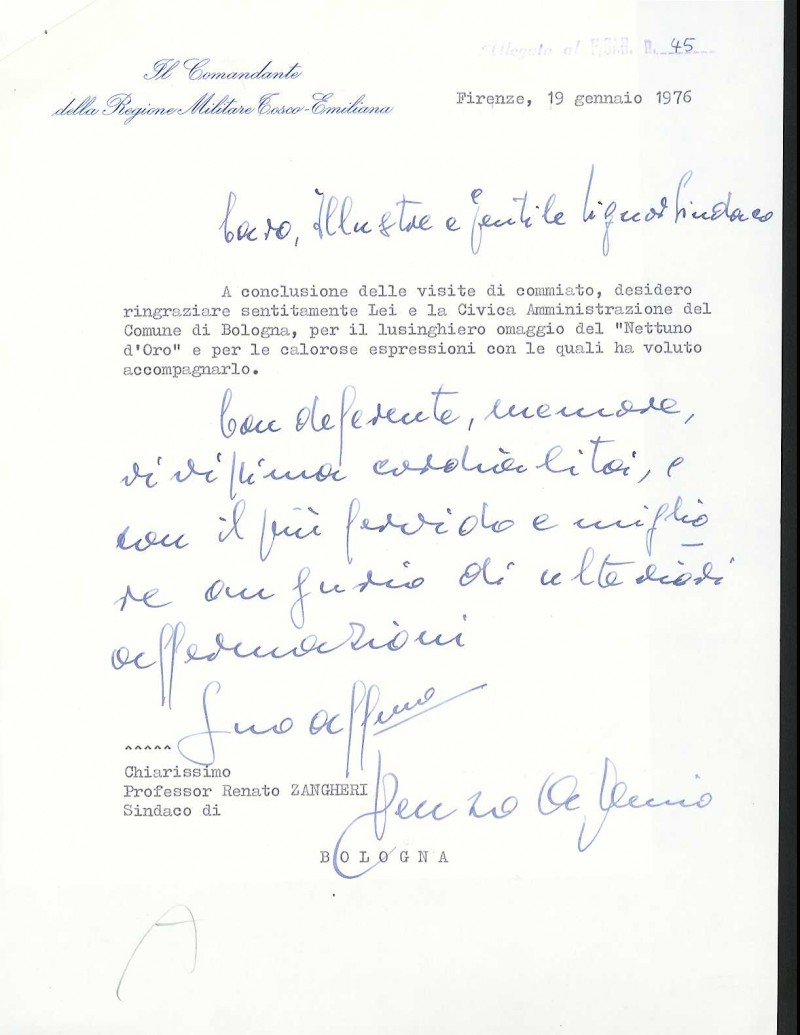 Allegato al P.G.R. n. 45
Il Comandante
della Regione Militare Tosco-Emiliana
Firenze, 19 gennaio 1976
Caro, Illustre e Gentile Signor Sindaco
A conclusione delle visite di commiato, desidero
ringraziare sentitamente Lei e la Civica Amministrazione del
Comune di Bologna, per il lusinghiero omaggio del "Nettuno
d'Oro" e per le calorose espressioni con le quali ha voluto
accompagnarlo.
Con deferente, memore,
vivissima cordialità, e
con il più fervido e miglio
re augurio di ulteriori
affermazioni
Suo aff.mo
^^^^^
Chiarissimo
Professor Renato ZANGHERI
Sindaco di
B O L O G N A
A